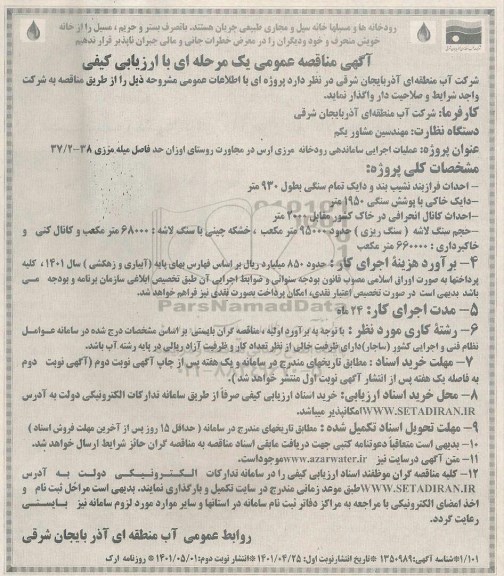 رودخانه ها و مسیلها خانه سیل و مجاری طبیعی جریان هستند. باتصرف بستر و حریم ، مسیل را از خانه
خویش منحرف و خود ودیگران را در معرض خطرات جانی و مالی جبران ناپذیر قرار ندهیم
آگهی مناقصه عمومی یک مرحله ای با ارزیابی کیفی
شرکت آب منطقه‌ای آذربایجان شرقی در نظر دارد پروژه ای با اطلاعات عمومی مشروحه ذیل را از طریق مناقصه به شرکت
واجد شرایط و صلاحیت دار واگذار نماید.
کارفرما: شرکت آب منطقه‌ای آذربایجان شرقی
دستگاه نظارت: مهندسین مشاور یکم
عنوان پروژه: عملیات اجرایی ساماندهی رودخانه مرزی ارس در مجاورت روستای اوزان حد فاصل میله مرزی ۳۸-۳۷/۲
مشخصات کلی پروژه:
- احداث فرازبند نشیب بند و دایک تمام سنگی بطول ۹۳۰ متر
-دایک خاکی با پوشش سنگی ۱۹۵۰ متر
-احداث کانال انحرافی در خاک کشور مقابل ۲۰۰۰ متر
-حجم سنگ لاشه ( سنگ ریزی ) حدود ۹۵۰۰۰ متر مکعب ، خشکه چینی با سنگ لاشه : ۶۸۰۰۰ متر مکعب و کانال کنی و
خاکبرداری : ۶۶۰۰۰۰ متر مکعب
۴- برآورد هزینهٔ اجرای کار : حدود ۸۵۰ میلیارد ریال بر اساس فهارس بهای پایه (آبیاری و زهکشی ) سال ۱۴۰۱ ، کلیه
پرداختها به صورت اوراق اسلامی مصوب قانون بودجه سنواتی و ضوابط اجرایی آن طبق تخصیص ابلاغی سازمان برنامه و بودجه می
باشد بدیهی است در صورت تخصیص اعتبار نقدی، امکان پرداخت بصورت نقدی نیز فراهم خواهد شد.
۵- مدت اجرای کار: ۲۴ ماه
ParsNamadData
۶- رشتهٔ کاری مورد نظر : با توجه به برآورد اولیه ، مناقصه گران بایستی بر اساس مشخصات درج شده در سامانه عوامل
نظام فنی و اجرایی کشور (ساجار)دارای ظرفیت خالی از نظر تعداد کار و ظرفیت آزاد ریالی در پایه رشته آب باشد.
۷- مهلت خرید اسناد : مطابق تاریخهای مندرج در سامانه و یک هفته پس از چاپ آگهی نوبت دوم (آگهی نوبت دوم
به فاصله یک هفته پس از انتشار آگهی نوبت اول منتشر خواهد شد ).
۸- محل خرید اسناد ارزیابی: خرید اسناد ارزیابی کیفی صرفاً از طریق سامانه تدارکات الکترونیکی دولت به آدرس
WWW.SETADIRAN.IR امکانپذیر میباشد.
۹- مهلت تحویل اسناد تکمیل شده : مطابق تاریخهای مندرج در سامانه ( حداقل ۱۵ روز پس از آخرین مهلت فروش اسناد )
۱۰- بدیهی است متعاقباً دعوتنامه کتبی جهت دریافت مابقی اسناد مناقصه به مناقصه گران حائز شرایط ارسال خواهد شد.
۱۱- متن آگهی درسایت نیز www.azarwater.ir موجوداست.
۱۲- کلیه مناقصه گران موظفند اسناد ارزیابی کیفی را در سامانه تدارکات الکترونیکی دولت به آدرس
WWW.SETADIRAN.IR طبق موعد زمانی مندرج در سایت تکمیل و بارگذاری نمایند. بدیهی است مراحل ثبت نام و
اخذ امضای الکترونیکی با مراجعه به مراکز دفاتر ثبت نام سامانه در استانها و سایر موارد مورد لزوم سامانه نیز بایستی
رعایت گردد.
روابط عمومی آب منطقه ای آذربایجان شرقی
۱/۱۰۱*شناسه آگهی: ۱۳۵۰۹۸۹ *تاریخ انتشارنوبت اول: ۱۴۰۱/۰۴/۲۵ *انتشار نوبت دوم: ۱۴۰۱/۰۵/۰۱* روزنامه ارک